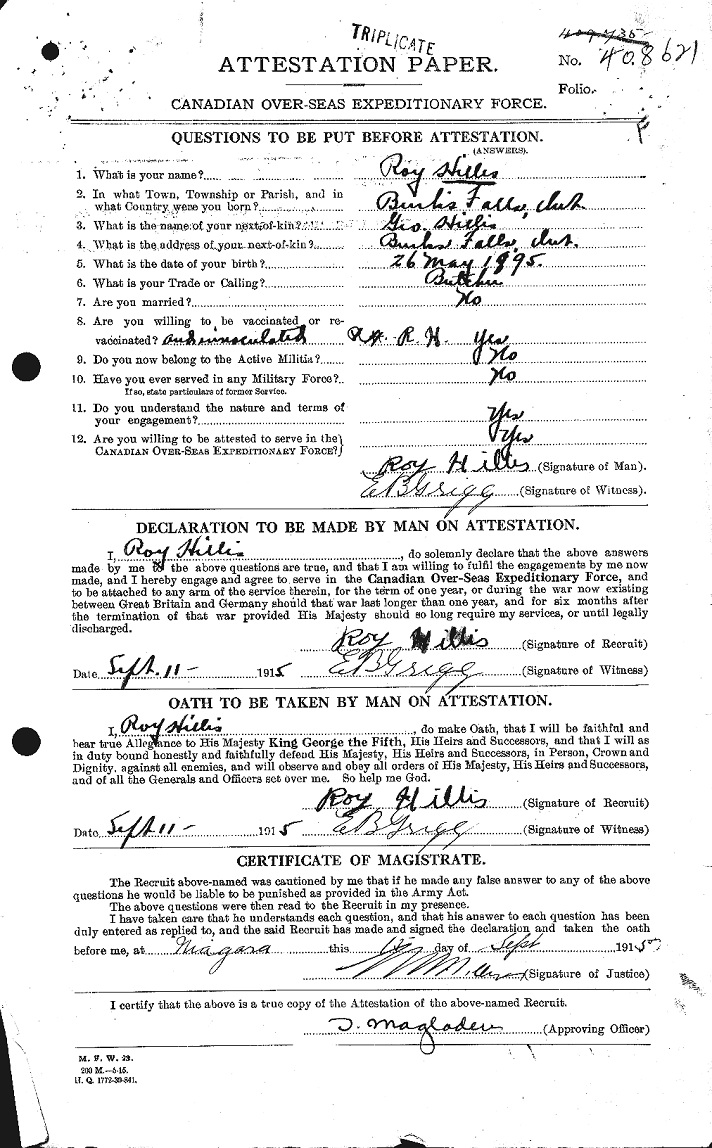 TRIPLICATE
ATTESTATION PAPER.
No. 408621
Folio.
CANADIAN OVER-SEAS EXPEDITIONARY FORCE.
QUESTIONS TO BE PUT BEFORE ATTESTATION.
(ANSWERS).
1. What is your name? Roy Hillis
2. In what Town, Township or Parish, and in
what Country were you born? Burks Falls, Ont.
3. What is the name of your next-of-kin? Geo. Hillis
4. What is the address of your next-of-kin? Burks Falls, Ont.
5. What is the date of your birth? 26 May 1895.
6. What is your Trade or Calling? Butcher
7. Are you married? No
8. Are you willing to be vaccinated or re-
vaccinated? and innoculated R. H. Yes
9. Do you now belong to the Active Militia? No
10. Have you ever served in any Military Force? No
If so, state particulars of former Service.
11. Do you understand the nature and terms of
your engagement? Yes
12. Are you willing to be attested to serve in the Yes
CANADIAN OVER-SEAS EXPEDITIONARY FORCE?
Roy Hillis (Signature of Man).
E B Grigg (Signature of Witness).
DECLARATION TO BE MADE BY MAN ON ATTESTATION.
I, Roy Hillis, do solemnly declare that the above answers
made by me to the above questions are true, and that I am willing to fulfil the engagements by me now
made, and I hereby engage and agree to serve in the Canadian Over-Seas Expeditionary Force, and
to be attached to any arm of the service therein, for the term of one year, or during the war now existing
between Great Britain and Germany should that war last longer than one year, and for six months after
the termination of that war provided His Majesty should so long require my services, or until legally
discharged.
Roy Hillis (Signature of Recruit)
Date Sept. 11 - 1915 E B Grigg (Signature of Witness)
OATH TO BE TAKEN BY MAN ON ATTESTATION.
I, Roy Hillis, do make Oath, that I will be faithful and
bear true Allegiance to His Majesty King George the Fifth, His Heirs and Successors, and that I will as
in duty bound honestly and faithfully defend His Majesty, His Heirs and Successors, in Person, Crown and
Dignity, against all enemies, and will observe and obey all orders of His Majesty, His Heirs and Successors,
and of all the Generals and Officers set over me. So help me God.
Roy Hillis (Signature of Recruit)
Date Sept. 11 - 1915 E B Grigg (Signature of Witness)
CERTIFICATE OF MAGISTRATE.
The Recruit above-named was cautioned by me that if he made any false answer to any of the above
questions he would be liable to be punished as provided in the Army Act.
The above questions were then read to the Recruit in my presence.
I have taken care that he understands each question, and that his answer to each question has been
duly entered as replied to, and the said Recruit has made and signed the declaration and taken the oath
before me, at Niagara this day of Sept 1915
(Signature of Justice)
I certify that the above is a true copy of the Attestation of the above-named Recruit.
(Approving Officer)
M. F. W. 23.
200 M.-5-15.
H. Q. 1772-39-841.